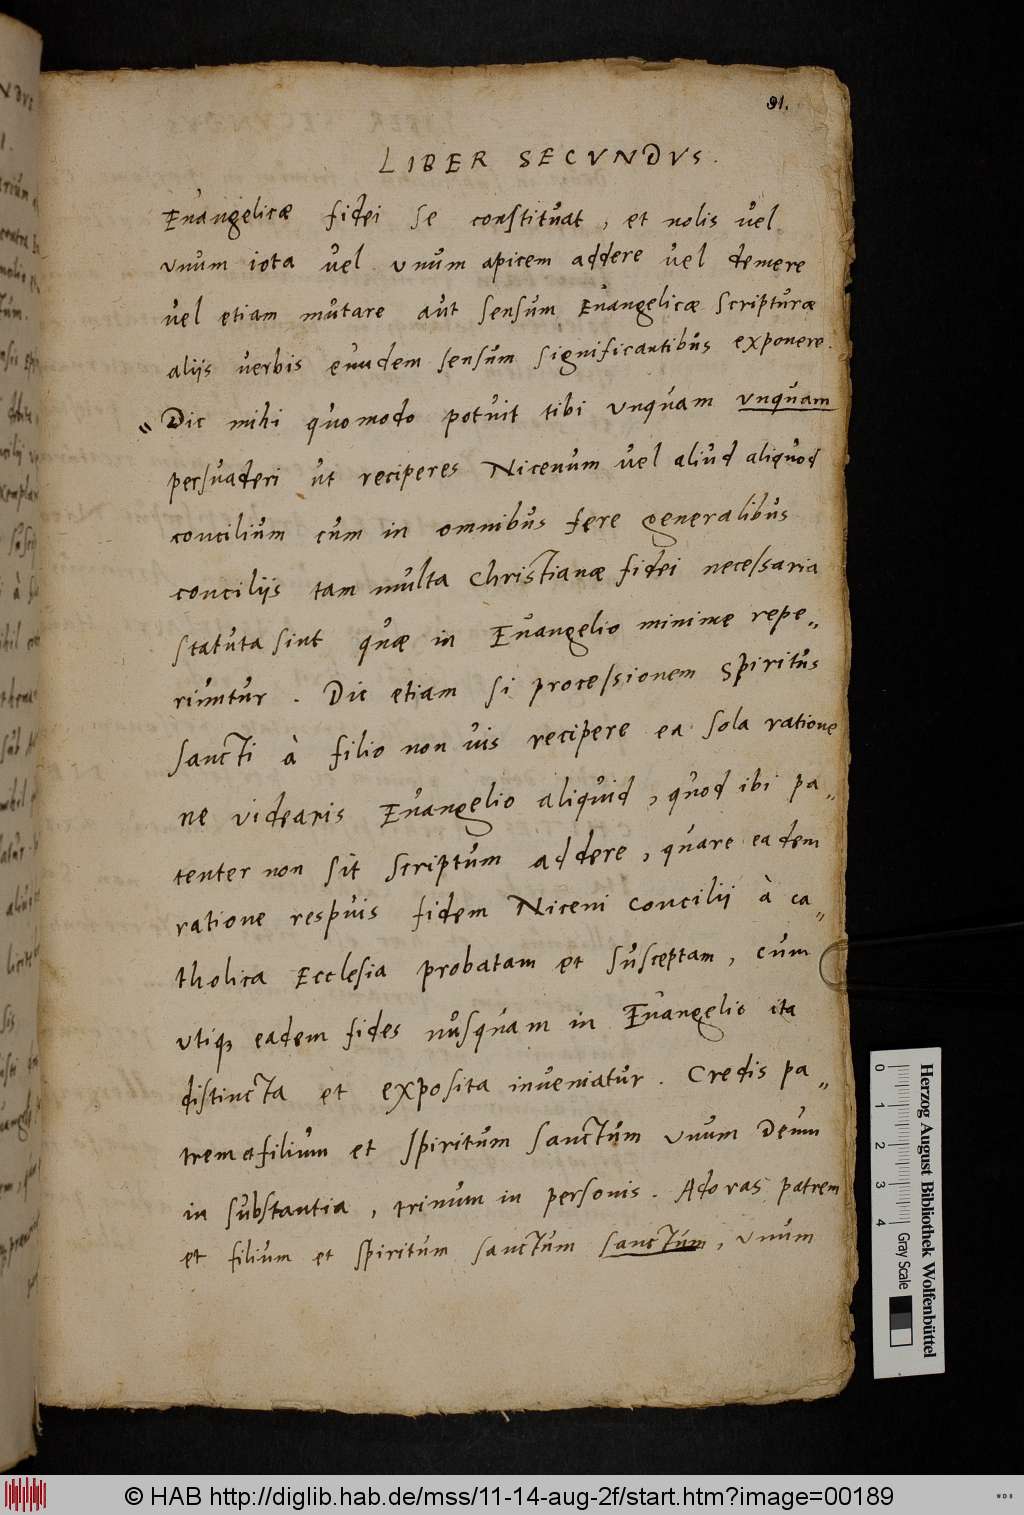 91.
LIBER SECVNDVS.
Euangelicæ fidei se constituat, et nolis vel
vnum iota vel vnum apicem addere vel demere
vel etiam mutare aut sensum Euangelicæ scripturæ
aliis verbis eundem sensum significantibus exponere.
" Dic mihi quomodo potuit tibi unquam vnquam
persuaderi ut reciperes Nicenum vel aliud aliquod
concilium cum in omnibus fere generalibus
conciliis tam multa Christianæ fidei necessaria
statuta sint quæ in Euangelio minime repe„
riuntur. Dic etiam si processionem Spiritus
sancti à filio non vis recipere ea sola ratione
ne videaris Euangelio aliquid, quod ibi pa„
tenter non sit scriptum addere, quare eadem
ratione respuis fidem Niceni concilii à ca„
tholica Ecclesia probatam et susceptam, cum
vtiq3 eadem fides nusquam in Euangelio ita
distincta et exposita inueniatur. Credis pa„
trem et filium et spiritum sanctum vnum Deum
in substantia, trinum in personis. Adoras patrem
et filium et spiritum sanctum sanctum, vnum
0 1 2 3 4
Gray Scale
Herzog August Bibliothek Wolfenbüttel
© HAB http://diglib.hab.de/mss/11-14-aug-2f/start.htm?image=00189